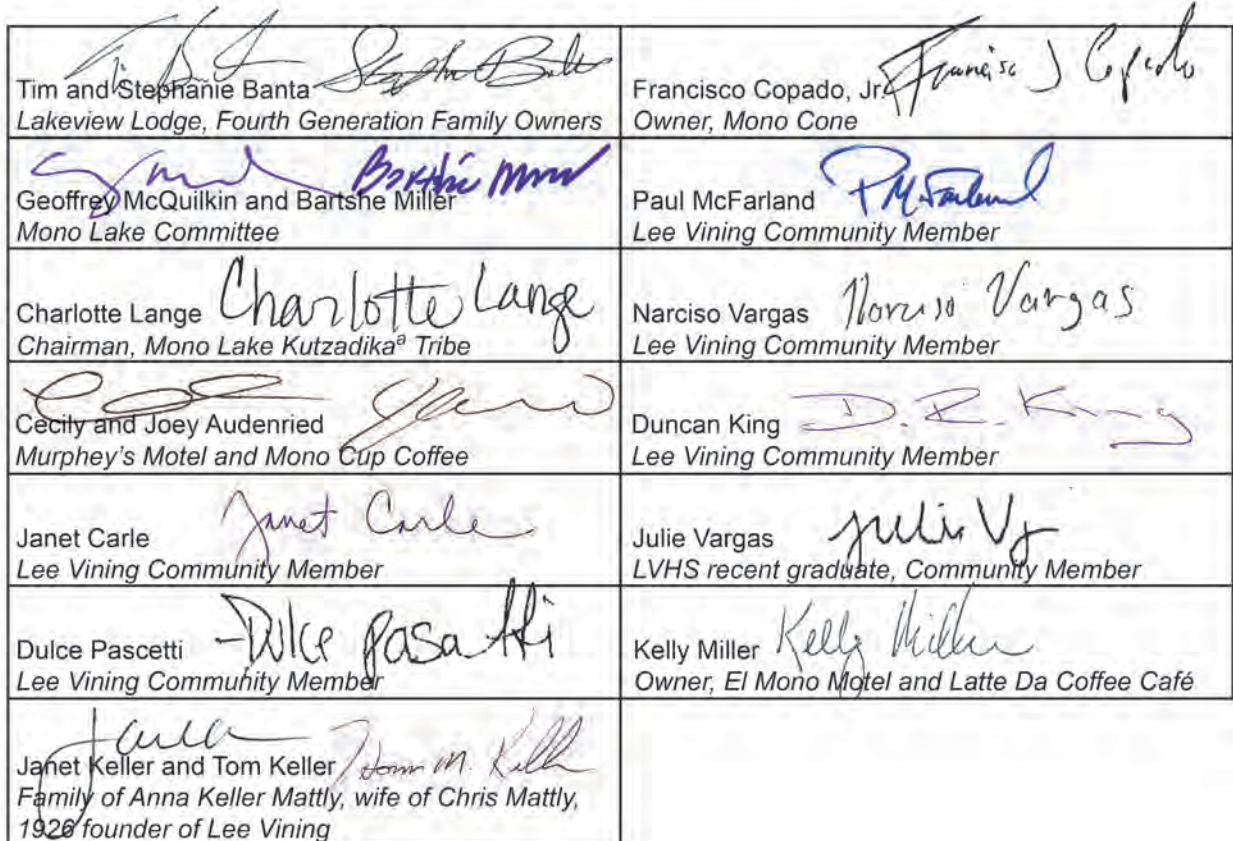 Tim and Stephanie Banta
Lakeview Lodge, Fourth Generation Family Owners
Francisco Copado, Jr.
Francisco J Copado
Owner, Mono Cone
Geoffrey McQuilkin and Bartshe Miller
Mono Lake Committee
Paul McFarland P McFarland
Lee Vining Community Member
Charlotte Lange Charlotte Lange
Chairman, Mono Lake Kutzadikaª Tribe
Narciso Vargas Narciso Vargas
Lee Vining Community Member
Cecily and Joey Audenried
Murphey's Motel and Mono Cup Coffee
Duncan King D. R. King
Lee Vining Community Member
Janet Carle Janet Carle
Lee Vining Community Member
Julie Vargas Julie
LVHS recent graduate, Community Member
Dulce Pascetti Dulce
Lee Vining Community Member
Kelly Miller Kelly Miller
Owner, El Mono Motel and Latte Da Coffee Café
Janet Keller and Tom Keller
Family of Anna Keller Mattly, wife of Chris Mattly,
1926 founder of Lee Vining